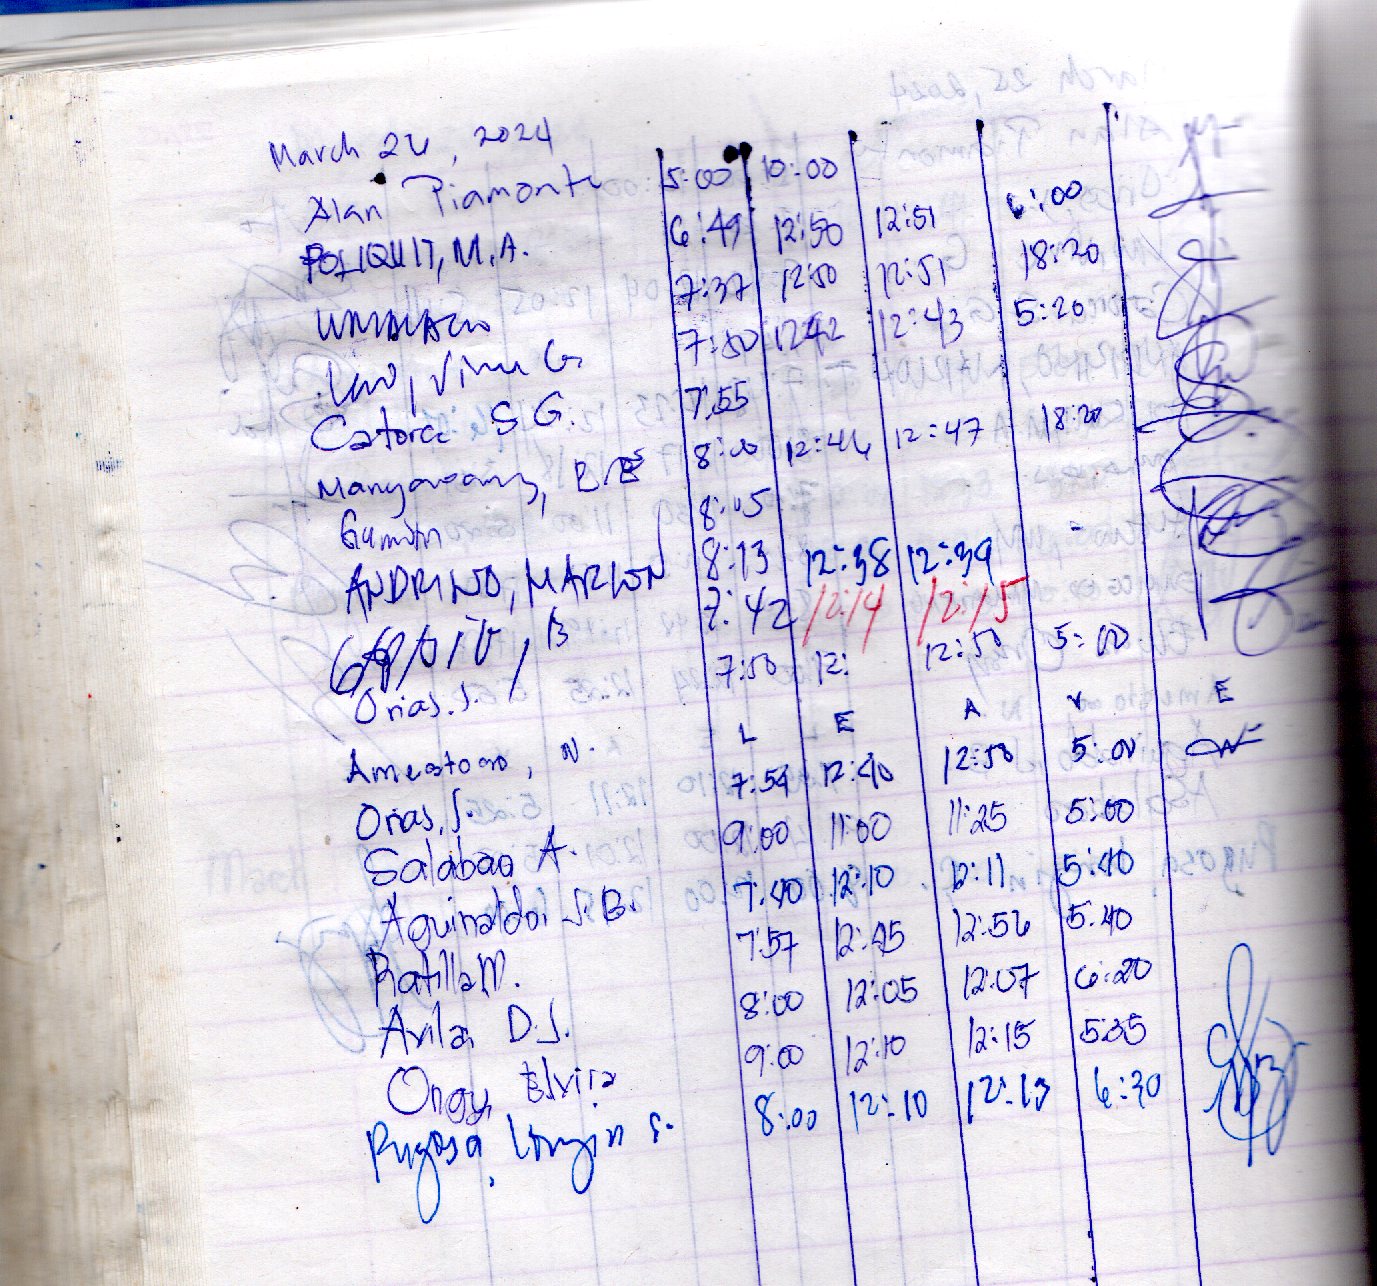 March 26, 2024
Alan Piamonte 5:00 10:00
POLIQUIT, M.A. 6:49 12:50 12:51 6:00
7:37 12:50 12:51 18:20
G. 7:50 1242 12:43 5:20
Catorce S.G. 7:55
Mangaoang, 8:00 12:46 12:47 18:20
8:05
ANDRINO, MARLON 8:13 12:38 12:39
7:42 12:14 12:15
Orias. S. 7:50 12: 12:50 5:00
Amestoso, N. L E A V E
Orias, S. 7:54 12:40 12:50 5:00
Salabao A. 9:00 11:00 11:25 5:00
Aguinaldo, J.B. 7:40 12:10 12:11 5:40
Ratilla M. 7:57 12:45 12:56 5:40
Avila, D.J. 8:00 12:05 12:07 6:20
Ongy, Elvira 9:00 12:10 12:15 535
Pugosa, 8:00 12:10 12:13 6:30